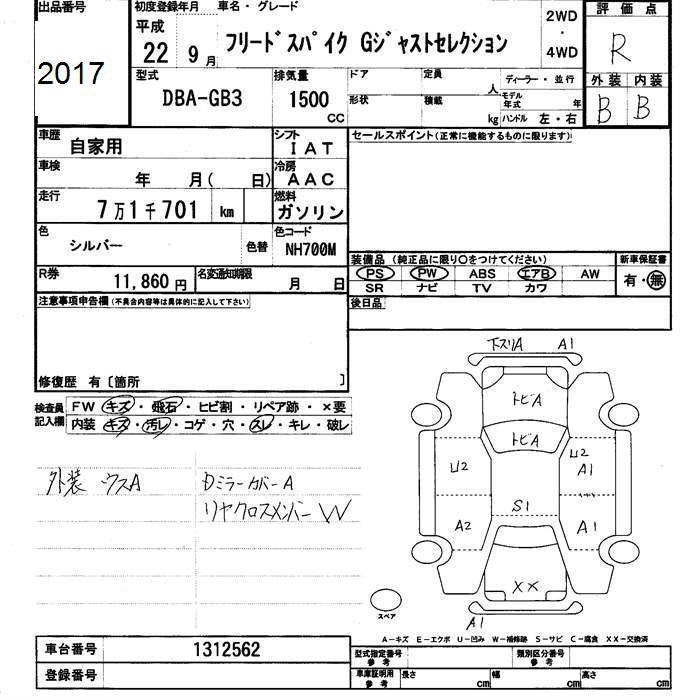 出品番号 初度登録年月 車名・グレード 2WD・4WD 評価点
2017 平成22 9月 フリードスパイク Gジャストセレクション R
型式 排気量 ドア 定員 人 ディーラー・並行 外装 内装
DBA-GB3 1500 CC 形状 積載 kg モデル年式 年 ハンドル 左・右 B B
車歴 自家用 シフト IAT セールスポイント(正常に機能するものに限ります)
車検 年 月( 日) 冷房 AAC
走行 7万1千701 km 燃料 ガソリン
色 シルバー 色替 色コード NH700M
装備品(純正品に限り○をつけてください) 新車保証書
R券 11,860円 名変通知期限 月 日 PS PW ABS エアB AW 有・無
SR ナビ TV カワ
注意事項申告欄(不具合内容等は具体的に記入して下さい) 後日品
修復歴 有〔箇所 〕
検査員記入欄 FW キズ・飛石・ヒビ割・リペア跡・×要
内装・キズ・汚レ・コゲ・穴・スレ・キレ・破レ
下スリA A1
トビA
トビA
U2 U2
A1
外装 ウスA Dミラーカバー A
リヤクロスメンバー W
S1
A2 A1
XX
スペア
A1
A-キズ E-エクボ U-凹み W-補修跡 S-サビ C-腐食 XX-交換済
車台番号 1312562 型式指定番号 参考 類別区分番号 参考
登録番号 車庫証明用 参考 長さ cm 幅 cm 高さ cm